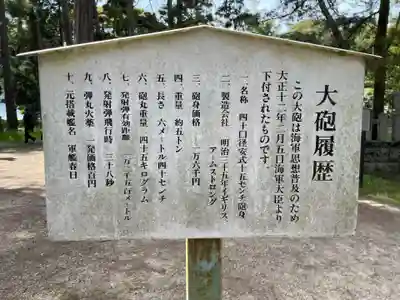 大砲履歴
この大砲は海軍思想普及のため
大正十二年二月五日海軍大臣より
下付されたものです。
一、名称 四十口径安式十五センチ砲身
二、製造会社 明治三十年イギリス、
アームストロング
三、砲身価格 一万六千円
四、重量 約五トン
五、長さ 六メートル四十センチ
六、砲丸重量 四十五キログラム
七、発射弾有効距離 一万二千五百メートル
八、発射弾飛行時 三十八秒
九、弾丸火薬 一発価格百円
十、元搭載艦名 軍艦春日